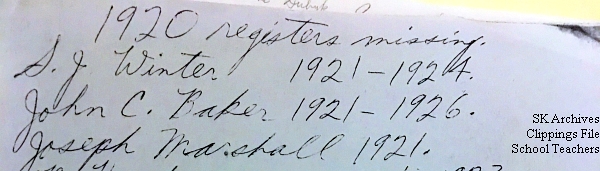 1920 registers missing.
S. J. Winter 1921-1924.
John C. Baker 1921-1926.
Joseph Marshall 1921.
SK Archives
Clippings File
School Teachers